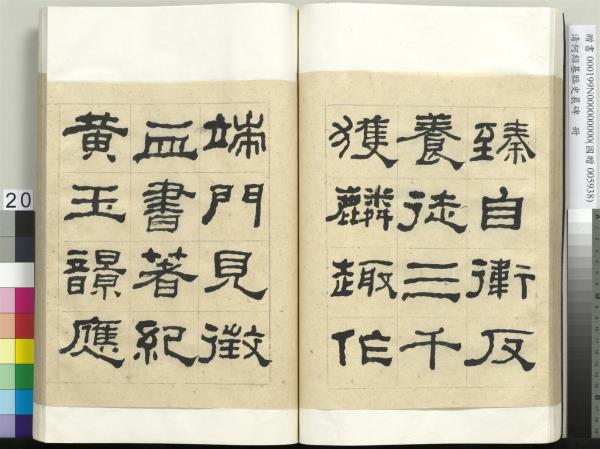 贈書 000199N000000000(國贈 005938)
清何紹基臨史晨碑 冊
臻自衛反
養徒三千
獲麟趣作
端門見徵
血書著紀
黃玉應
20